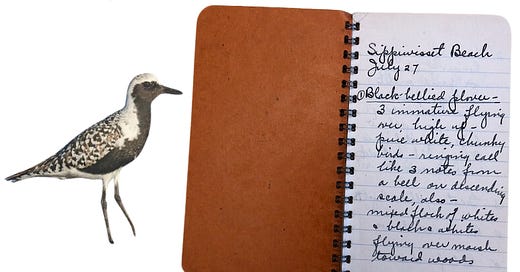 Sippiwisset Beach
July 27
① Black-bellied plover-
3 immature flying
over, high up -
pure white, chunky
birds - ringing call
like 3 notes from
a bell on descending
scale, also -
mixed flock of whites
& blacks & whites
flying over marsh
toward woods